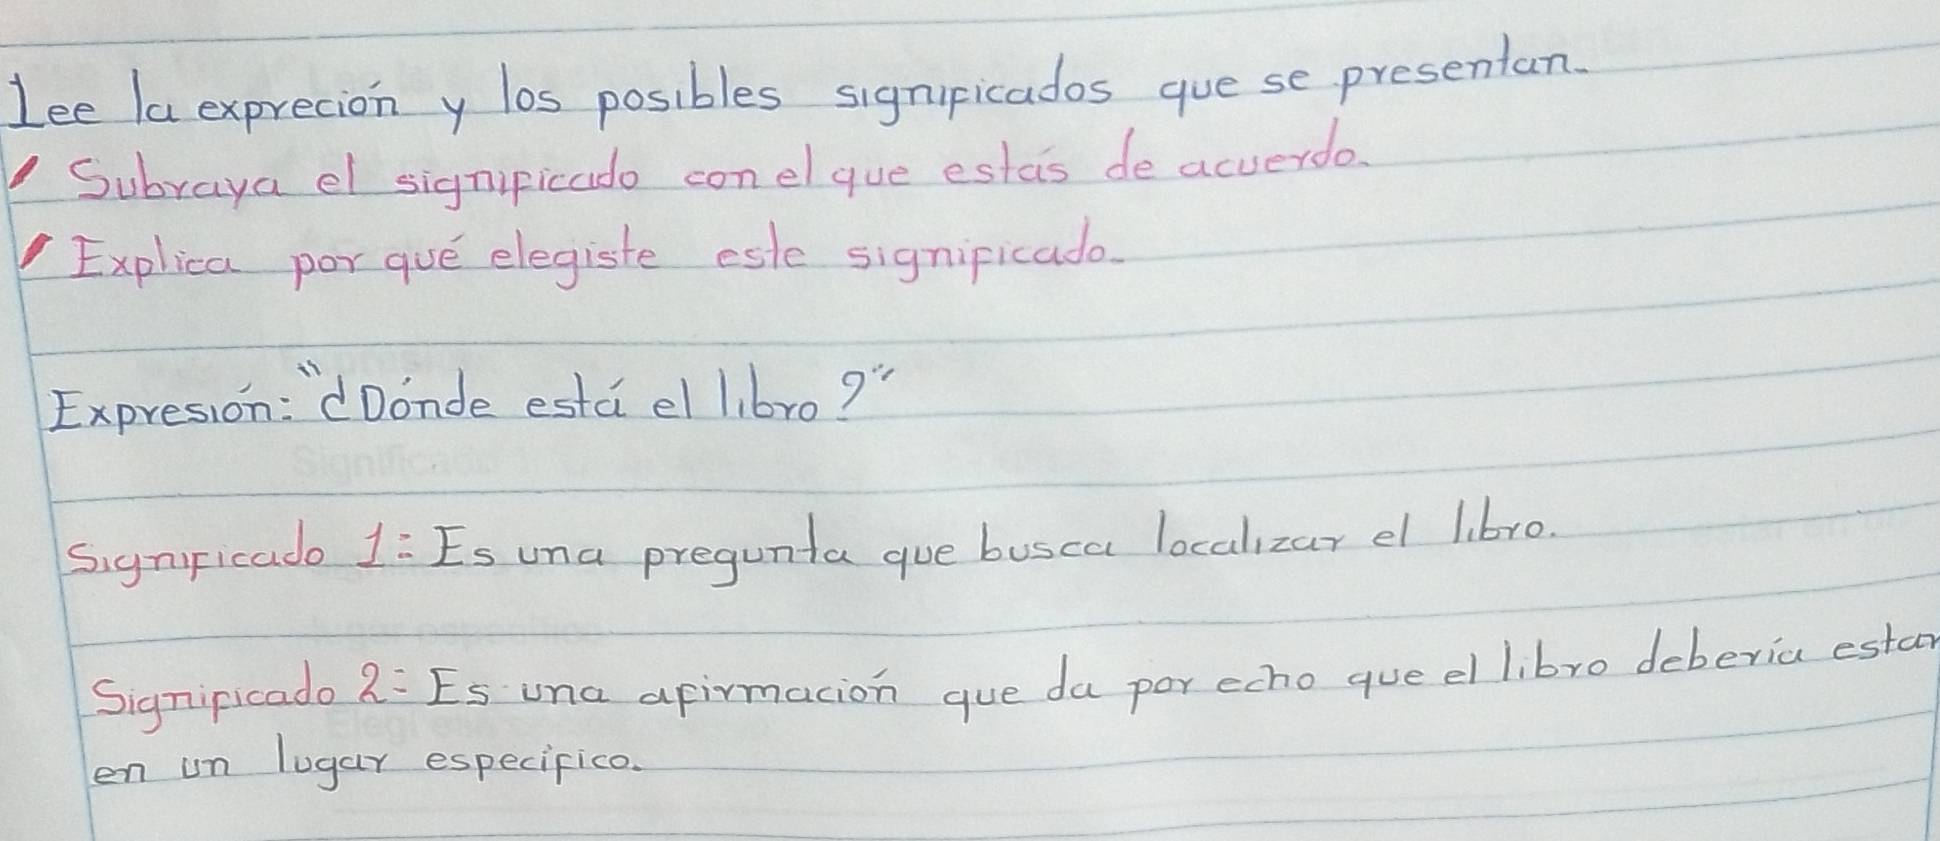 Lee la expreción y los posibles significados que se presentan.
Subraya el significado con el que estás de acuerdo.
Explica por qué elegiste este significado.
Expresión: "¿Dónde está el libro?"
Significado 1: Es una pregunta que busca localizar el libro.
Significado 2: Es una afirmación que da por echo que el libro debería estar
en un lugar específico.